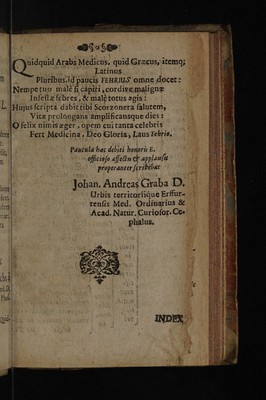 Quidquid Arabs Medicus, quid Græcus, itemq;
Latinus
Pluribus, id paucis FEHRIUS omne docet:
Nempe tuo malè si capiti, cordive malignæ
Infestæ febres, & malè totus agis:
Hujus scripta dabit tibi Scorzonera salutem,
Vitæ prolongans amplificansque dies:
O felix nimis æger, opem cui tanta celebris
Fert Medicina, Deo Gloria, Laus Febrio.
Paucula hæc debiti honoris E.
officioso affectu & applausu
properanter scribebat
Johan. Andreas Graba D.
Urbis territoriique Erffur-
tensis Med. Ordinarius &
Acad. Natur. Curiosor. Ce-
phalus.
INDEX